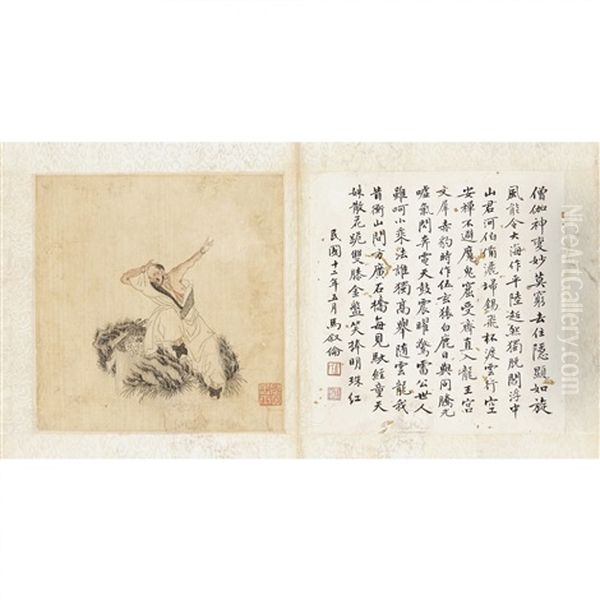 僧伽神變妙莫窮去住隱顯如旋
風能令大海作平陸超然獨脫閻浮中
山君河伯備灑埽錫飛杯渡雲行空
安禪不避魔鬼窟受齋直入龍王宮
文犀赤豹時作伍玄猿白鹿日與同騰光
噓氣閃奔電天鼓震曜驚雷公世人
雖呵小乘法誰獨高舉隨雲龍我
昔衡山問方廣石橋每見馱經童天
姝散花跪雙膝金盤笑捧明珠紅
民國十二年五月馬叙倫
NiceArtGallery.com